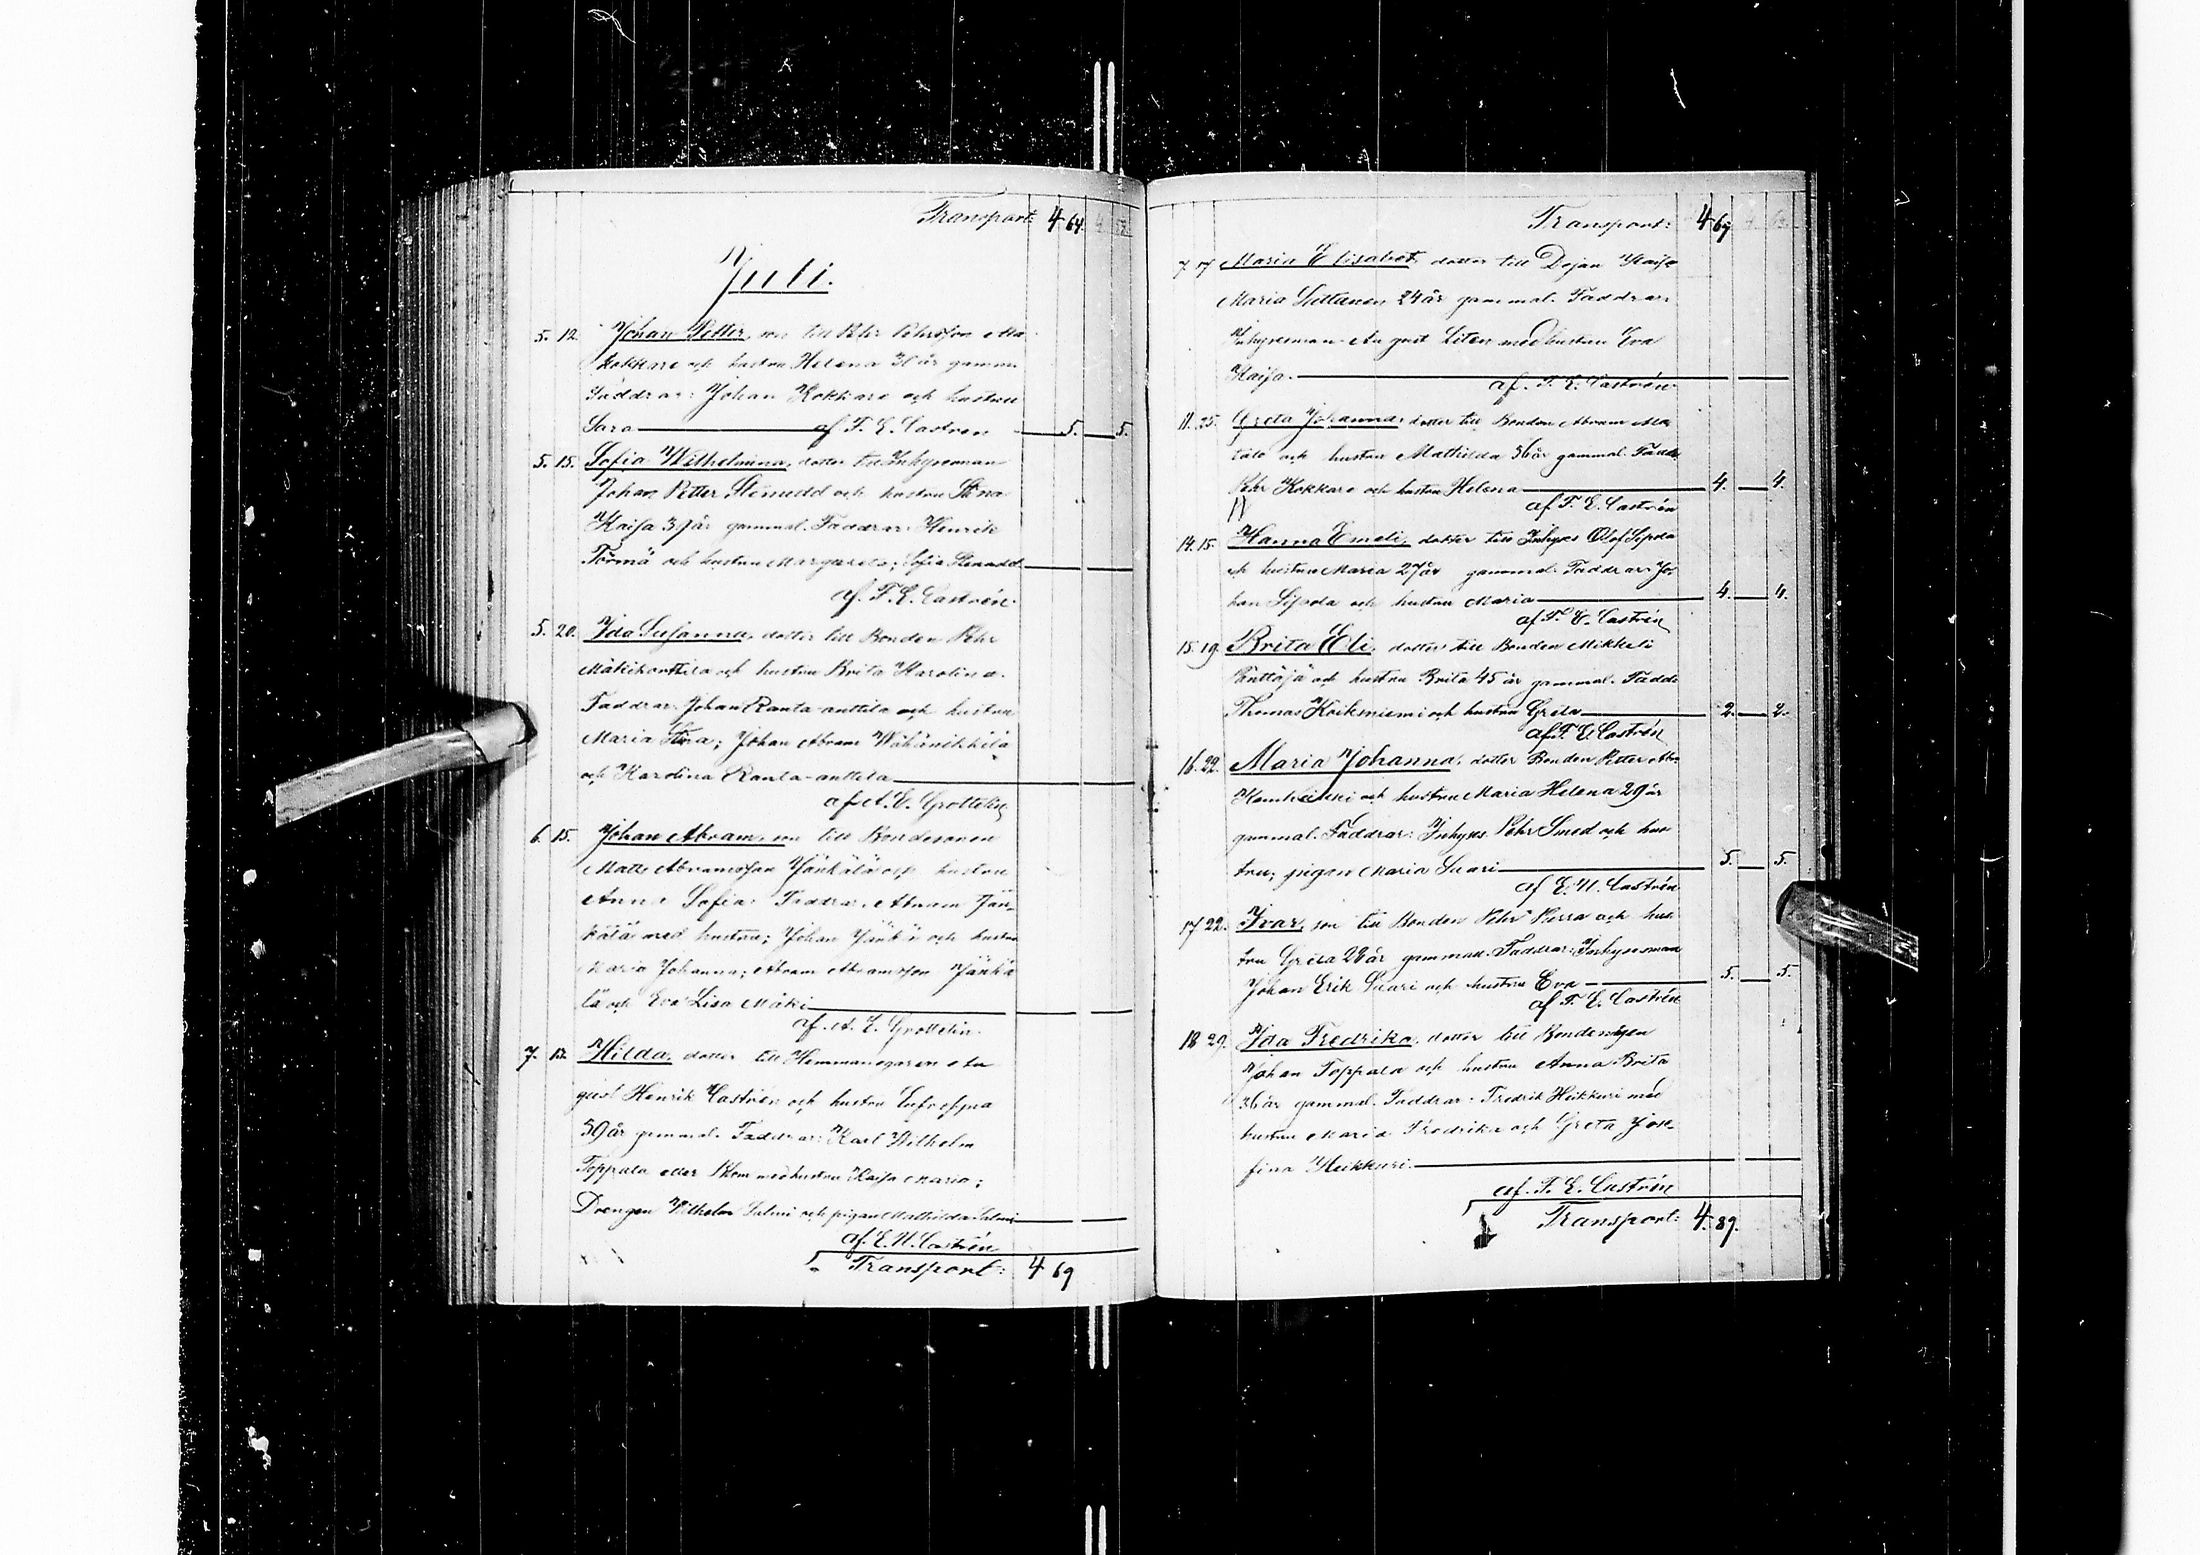 Transport: 4 64.
Juli.
5. 12. Johan Petter, son till Pehr Pehrsson
Kokkare och hustru Helena 30 år gamm
Faddrar: Johan Kokkare och hustru
Sara af F. E. Castren 5. 5.
5. 15. Sofia Wilhelmina, dotter till Inhysesman
Johan Petter Stenudd och hustru Stina
Kaisa 39 år gammal. Faddrar: Henrik
Törmä och hustru Margareta; Sofia Stenudd
af F. E. Castrén.
5. 20. Ida Susanna, dotter till Bonden Pehr
Mäkikonttila och hustru Brita Karolina.
Faddrar: Johan Ranta-anttila och hustru
Maria Stina; Johan Abram Wähänikkilä
och Karolina Ranta-anttila
af A. E. Grottelin
6. 15. Johan Abram, son till Bondesonen
Matts Abramsson Jänkälä och hustru
Anna Sofia. Faddrar: Abram Jän-
kälä med hustru; Johan och hustru
Maria Johanna; Abram Abramsson Jänkä
lä och Eva Lisa Mäki
af A. E. Grottelin.
7. 13. Hilda, dotter till Hemmansegaren Au
gust Henrik Castrén och hustru
39 år gammal. Faddrar: Karl Wilhelm
Toppala eller med hustru Kaisa Maria;
Drengen Wilhelm Salmi och pigan Mathilda Salmi
af E. N. Castrén
Transport: 4 69
Transport: 4 69
7. 17. Maria Elisabet, dotter till Dejan Kaisa
Maria 24 år gammal. Faddrar:
Inhysesman August Liten med hustru Eva
Kaisa.
af F. E. Castrén
11. 25. Greta Johanna, dotter till Bonden Abram
och hustru Mathilda 36 år gammal. Fadd
Pehr Kokkare och hustru Helena 4. 4.
af F. E. Castrén
14. 15. Hanna Emeli, dotter till Inhyses Olof Sipola
och hustru Maria 27 år gammal. Faddrar: Jo
han Sipola och hustru Maria 4. 4.
af F. E. Castrén
15. 19. Brita Eli, dotter till Bonden Mikkeli
Pänttäjä och hustru Brita 45 år gammal. Fadd
Thomas Koikniemi och hustru Greta 2. 2.
af F. E. Castrén
16. 22. Maria Johanna, dotter Bonden Petter
och hustru Maria Helena 29 år
gammal. Faddrar: Inhyses Pehr Smed och hus
tru; pigan Maria Saari 5. 5.
af E. N. Castrén
17 22. Ivar, son till Bonden Pehr och hus
tru Greta 28 år gammal. Faddrar: Inhysesman
Johan Erik Saari och hustru Eva 5. 5.
af F. E. Castrén
18 29. Ida Fredrika, dotter till Bondemågen
Johan Toppala och hustru Anna Brita
36 år gammal. Faddrar: Fredrik Heikkuri med
hustru Maria Fredrika och Greta Jose-
fina Heikkuri.
af F. E. Castrén
Transport: 4. 89.